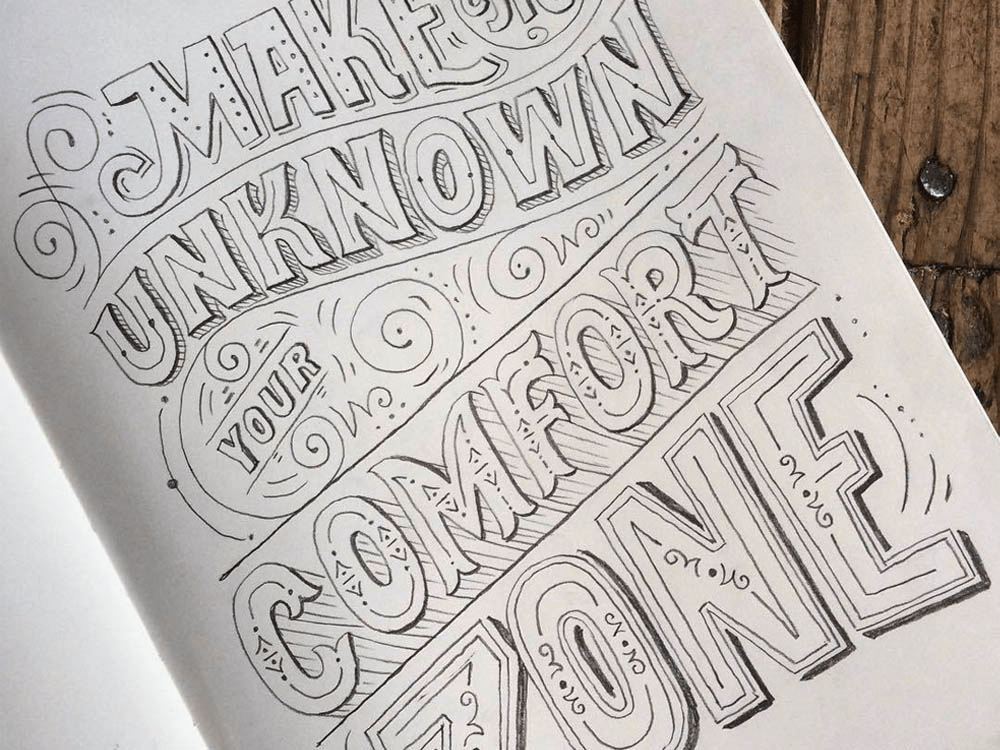 MAKE
UNKNOWN
YOUR
COMFORT
ZONE